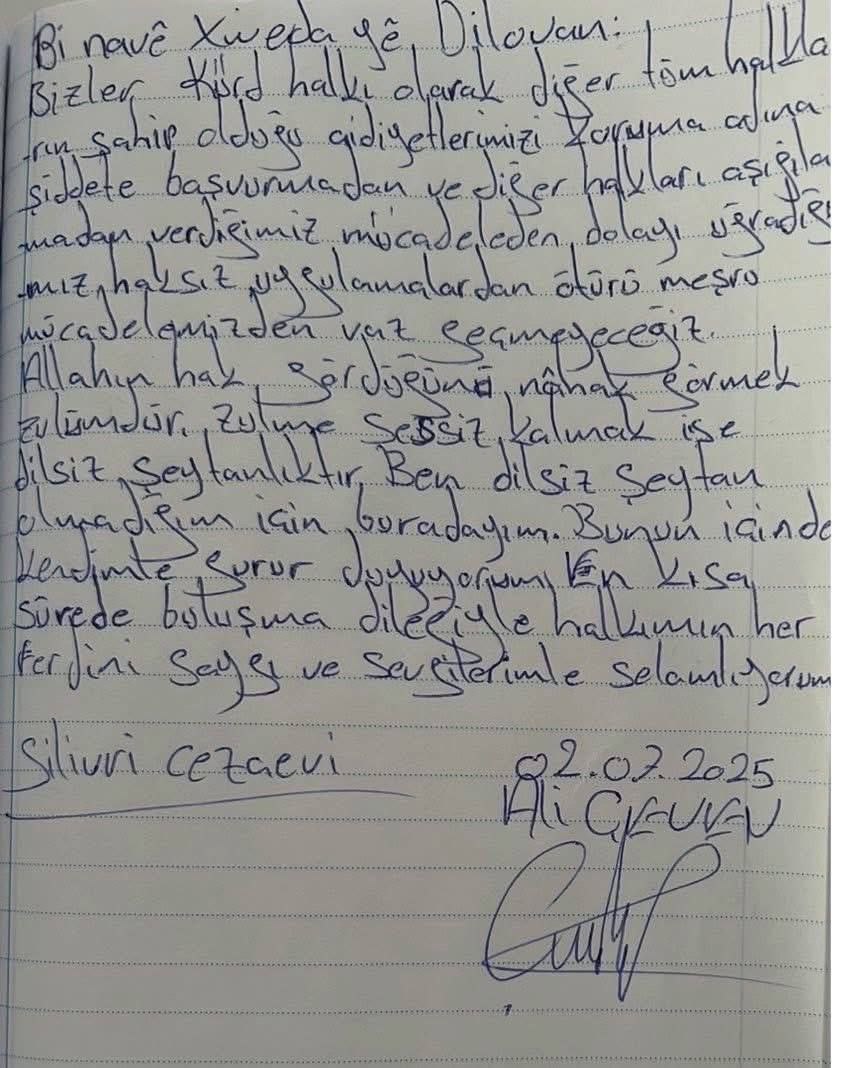 Bi navê Xweda yê Dilovan:
Bizler Kürd halkı olarak diğer tüm halkla
rın sahip olduğu aidiyetlerimizi koruma adına
şiddete başvurmadan ve diğer halkları aşığıla
madan verdiğimiz mücadeleden dolayı uğradığı
mız haksız uygulamalardan ötürü meşru
mücadelemizden vaz geçmeyeceğiz.
Allahın hak gördüğünü nâhak görmek
zulümdür. Zulme sessiz kalmak ise
dilsiz şeytanlıktır. Ben dilsiz şeytan
olmadığım için buradayım. Bunun içinde
kendimle gurur duyuyorum. En kısa
sürede buluşma dileğiyle halkımın her
ferdini saygı ve sevgilerimle selamlıyorum
Silivri Cezaevi
02.07.2025
Ali